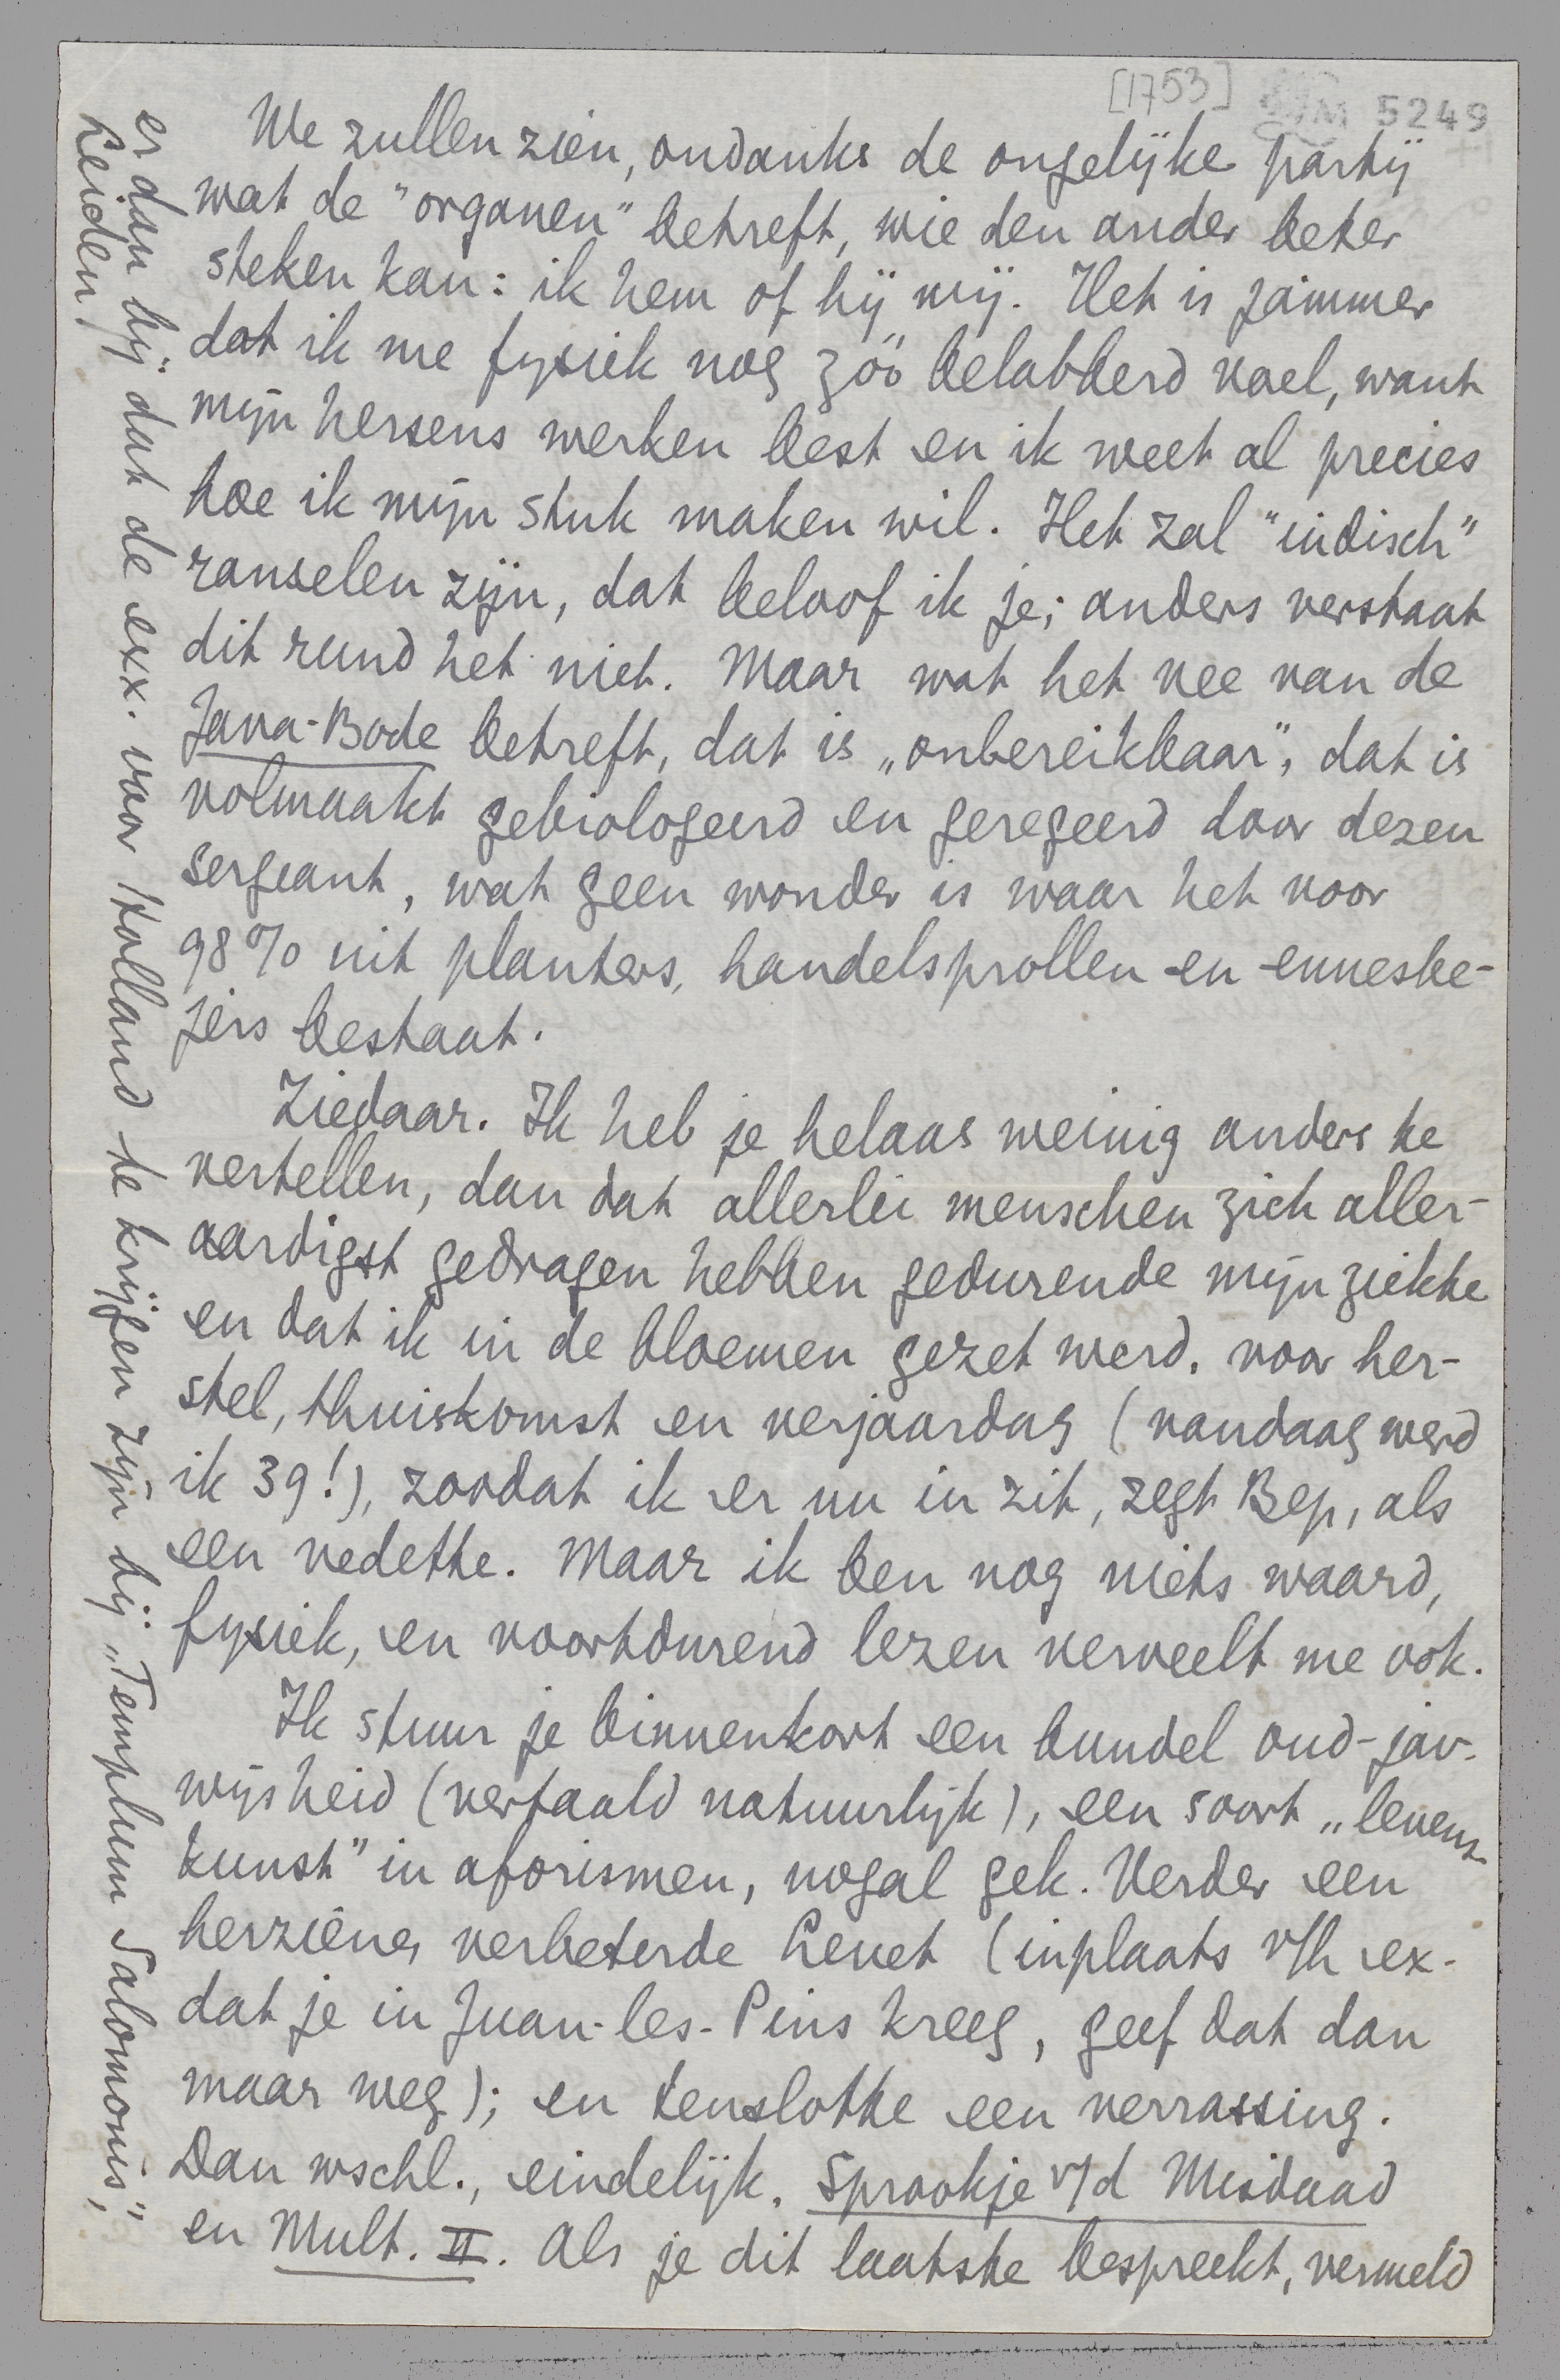 [1753] LM 5249
We zullen zien, ondanks de ongelijke partij
wat de "organen" betreft, wie den ander beter
steken kan: ik hem of hij mij. Het is jammer
dat ik me fysiek nog zóó belabberd voel, want
mijn hersens werken best en ik weet al precies
hoe ik mijn stuk maken wil. Het zal "indisch"
ranselen zijn, dat beloof ik je; anders verstaat
dit rund het niet. Maar wat het vee van de
Java-Bode betreft, dat is „onbereikbaar", dat is
volmaakt gebiologeerd en geregeerd door dezen
sergeant, wat geen wonder is waar het voor
98% uit planters, handelsprollen en ennesbe-
jers bestaat.
Ziedaar. Ik heb je helaas weinig anders te
vertellen, dan dat allerlei menschen zich aller-
aardigst gedragen hebben gedurende mijn ziekte
en dat ik in de bloemen gezet werd, voor her-
stel, thuiskomst en verjaardag (vandaag werd
ik 39!), zoodat ik er nu in zit, zegt Bep, als
een vedette. Maar ik ben nog niets waard,
fysiek, en voortdurend lezen verveelt me ook.
Ik stuur je binnenkort een bundel oud-jav.
wijsheid (vertaald natuurlijk), een soort „levens-
kunst" in aforismen, nogal gek. Verder een
herziene, verbeterde Levet (inplaats v/h ex.
dat je in Juan-les-Pins kreeg, geef dat dan
maar weg); en tenslotte een verrassing.
Dan wschl., eindelijk, Sprookje v/d Misdaad
en Mult. II. Als je dit laatste bespreekt, vermeld
er dan bij dat de exx. voor Holland te krijgen zijn bij „Templum Salomonis",
Leiden,